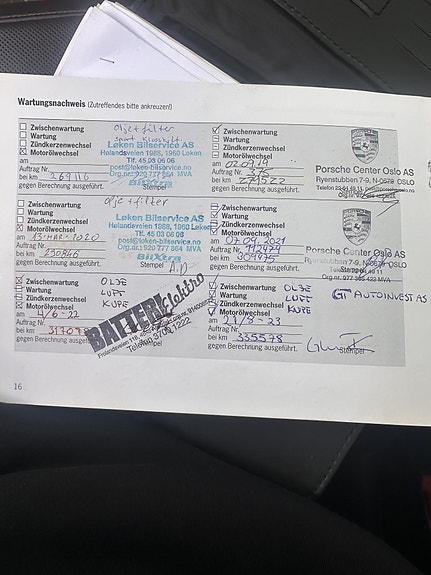 Wartungsnachweis (Zutreffendes bitte ankreuzen!)
Zwischenwartung
Wartung
Zündkerzenwechsel
Motorölwechsel
am
Auftrag Nr.
bei km 269116
gegen Berechnung ausgeführt.
olje+filter
Løken Bilservice AS
Hølandsveien 1988, 1960 Løken
Tlf. 45 03 06 06
post@loken-bilservice.no
Org.nr.: 920 777 864 MVA
Stempel
Zwischenwartung
Wartung
Zündkerzenwechsel
Motorölwechsel
am 02.09.19
Auftrag Nr.
bei km
gegen Berechnung ausgeführt.
PORSCHE
Porsche Center Oslo AS
Ryenstubben 7-9, N-0679 OSLO
Zwischenwartung
Wartung
Zündkerzenwechsel
Motorölwechsel
am 13 MAR 2020
Auftrag Nr.
bei km
gegen Berechnung ausgeführt.
olje+filter
Løken Bilservice AS
Hølandsveien 1988, 1960 Løken
Tlf. 45 03 06 06
post@loken-bilservice.no
Org.nr.: 920 777 864 MVA
BilXtra
Stempel
Zwischenwartung
Wartung
Zündkerzenwechsel
Motorölwechsel
am 07.09.2021
Auftrag Nr.
bei km 309975
gegen Berechnung ausgeführt.
Porsche Center Oslo AS
Ryenstubben 7-9, N-0679 OSLO
Stempel
Zwischenwartung
Wartung
Zündkerzenwechsel
Motorölwechsel
am 4/6-22
Auftrag Nr.
bei km
gegen Berechnung ausgeführt.
OLJE
LUFT
KUPE
BATTERI Elektro
Telefon 3708 1222
Zwischenwartung
Wartung
Zündkerzenwechsel
Motorölwechsel
am 21/8-23
Auftrag Nr.
bei km 335578
gegen Berechnung ausgeführt.
OLJE
LUFT
KUPE
GT AUTOINVEST AS
Stempel
16